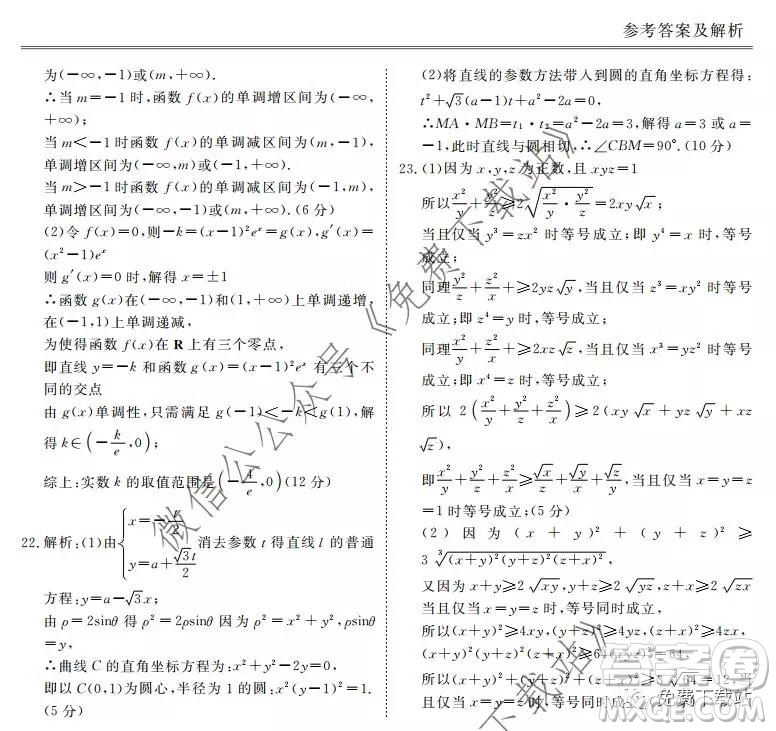 参考答案及解析
为(-∞,-1)或(m,+∞).
∴当 m=-1 时,函数 f(x)的单调增区间为(-∞,
+∞);
当 m<-1 时函数 f(x)的单调减区间为(m,-1),
单调增区间为(-∞,m)或(-1,+∞).
当 m>-1 时函数 f(x)的单调减区间为(-1,m),
单调增区间为(-∞,-1)或(m,+∞).(6 分)
(2)令 f(x)=0,则-k=(x-1)²eˣ=g(x),g′(x)=
(x²-1)eˣ
则 g′(x)=0 时,解得 x=±1
∴函数 g(x)在(-∞,-1)和(1,+∞)上单调递增,
在(-1,1)上单调递减,
为使得函数 f(x)在 R 上有三个零点,
即直线 y=-k 和函数 g(x)=(x-1)²eˣ 有三个不
同的交点
由 g(x)单调性,只需满足 g(-1)<-k<g(1),解
得 k∈(-k/e,0);
综上:实数 k 的取值范围是(-4/e,0)(12 分)
22.解析:(1)由{x=-t/2
y=a+√3t/2 消去参数 t 得直线 l 的普通
方程:y=a-√3x;
由 ρ=2sinθ 得 ρ²=2ρsinθ 因为 ρ²=x²+y²,ρsinθ
=y,
∴曲线 C 的直角坐标方程为:x²+y²-2y=0,
即以 C(0,1)为圆心,半径为 1 的圆:x²+(y-1)²=1.
(5 分)
(2)将直线的参数方法带入到圆的直角坐标方程得:
t²+√3(a-1)t+a²-2a=0,
∴MA·MB=t₁·t₂=a²-2a=3,解得 a=3 或 a=
-1,此时直线与圆相切,∴∠CBM=90°.(10 分)
23.(1)因为 x,y,z 为正数,且 xyz=1
所以 x²/y+y²/z≥2√(x²/y·y²/z)=2xy√x;
当且仅当 y³=zx² 时等号成立;即 y⁴=x 时,等号
成立.
同理 y²/z+z²/x≥2yz√y,当且仅当 z³=xy² 时等号
成立;即 z⁴=y 时,等号成立;
同理 x²/y+z²/x≥2xz√z,当且仅当 x³=yz² 时等号
成立;即 x⁴=z 时,等号成立;
所以 2(x²/y+y²/z+z²/x)≥2(xy√x+yz√y+xz
√z),
即 x²/y+y²/z+z²/x≥√x/z+√y/x+√z/y,当且仅当 x=y=z
=1 时等号成立;(5 分)
(2)因为(x+y)²+(y+z)²+(z+x)²≥
3∛((x+y)²(y+z)²(z+x)²),
又因为 x+y≥2√xy,y+z≥2√yz,x+z≥2√zx
当且仅当 x=y=z=1 时,等号同时成立,
所以(x+y)²≥4xy,(y+z)²≥4yz,(z+x)²≥4zx,
所以(x+y)²(y+z)²(z+x)²≥64(xyz)²=64,
所以(x+y)²+(y+z)²+(z+x)²≥3∛64=12,当
且仅当 x=y=z=1 时,等号同时成立.(10 分)
微信公众号《免费下载站》
免费下载站》
免费下载站
答案圈
MXQE.COM